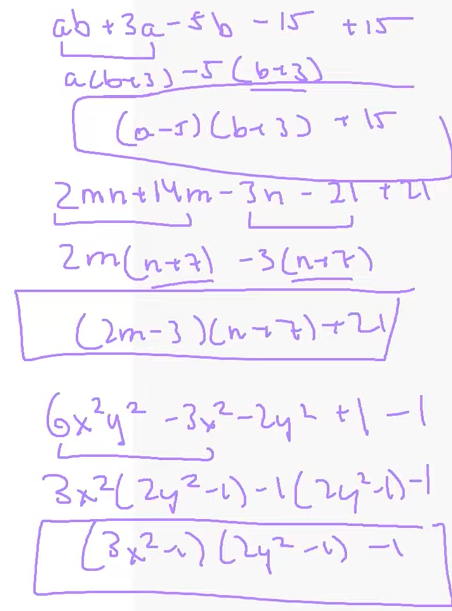 ab + 3a - 5b - 15 + 15
a(b+3) - 5(b+3)
(a-5)(b+3) + 15
2mn + 14m - 3n - 21 + 21
2m(n+7) - 3(n+7)
(2m-3)(n+7) + 21
6x²y² - 3x² - 2y² + 1 - 1
3x²(2y²-1) - 1(2y²-1) - 1
(3x²-1)(2y²-1) - 1